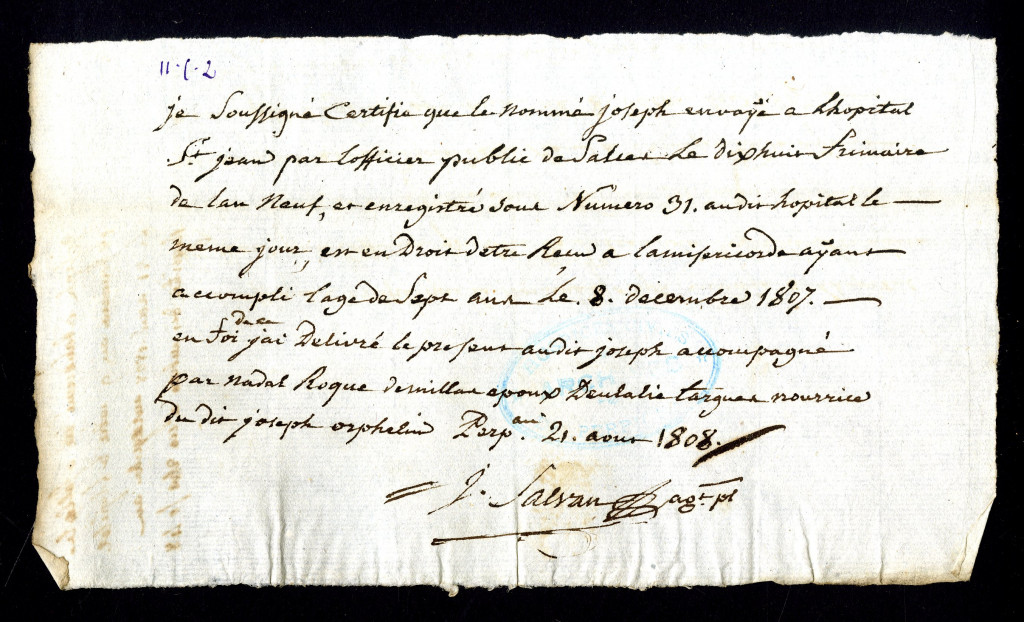 11-C-2
je Soussigné Certifie que le nommé joseph envoÿé a lhopital
St jean par lofficier public de Salses Le dixhuit frimaire
de lan Neuf, et enregistré sous Numero 31. audit hopital le
meme jour, est en Droit detre Recu a lamisericorde aÿant
accompli lage de Sept ans Le. 8. decembre 1807.
de ce
en foi jai Delivré le present audit joseph accompagné
par nadal Roque demillas epoux Deulalie targues nourrice
du dit joseph orphelin Perp.an 21. aout 1808.
J. Salvan agt. pl